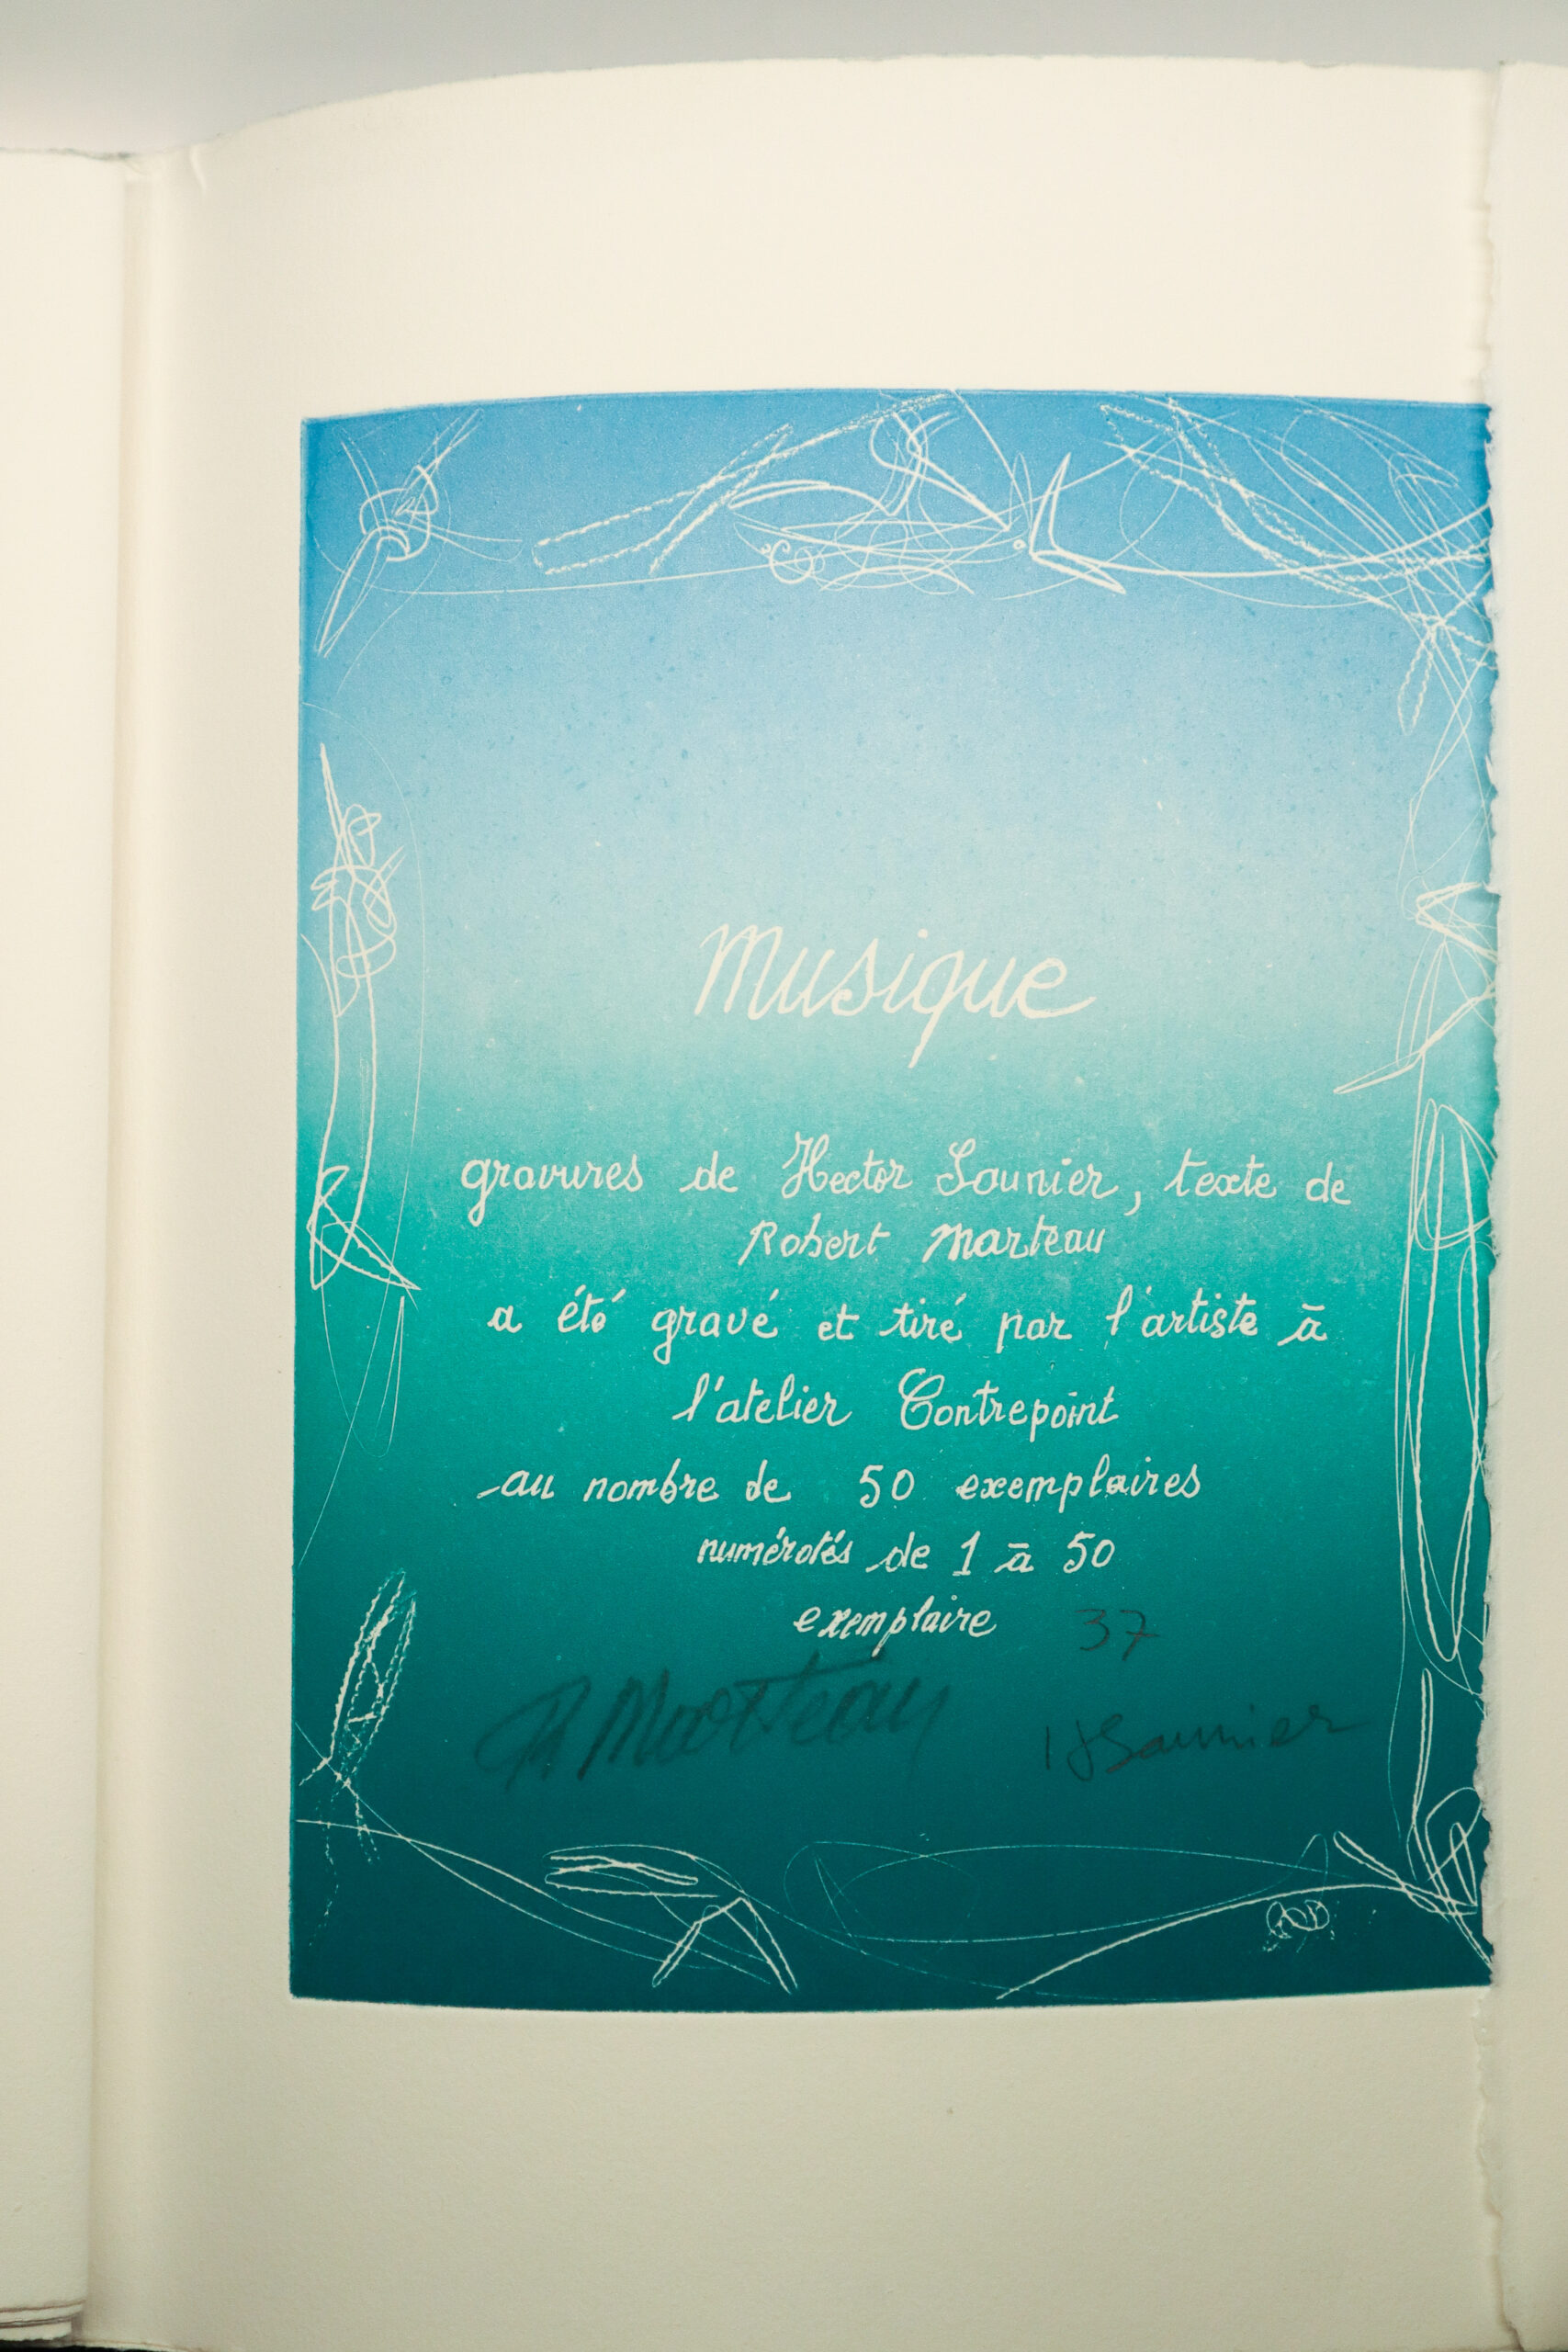 Musique
gravures de Hector Saunier, texte de
Robert Marteau
a été gravé et tiré par l'artiste à
l'atelier Contrepoint
au nombre de 50 exemplaires
numérotés de 1 à 50
exemplaire 37
R Marteau HSaunier